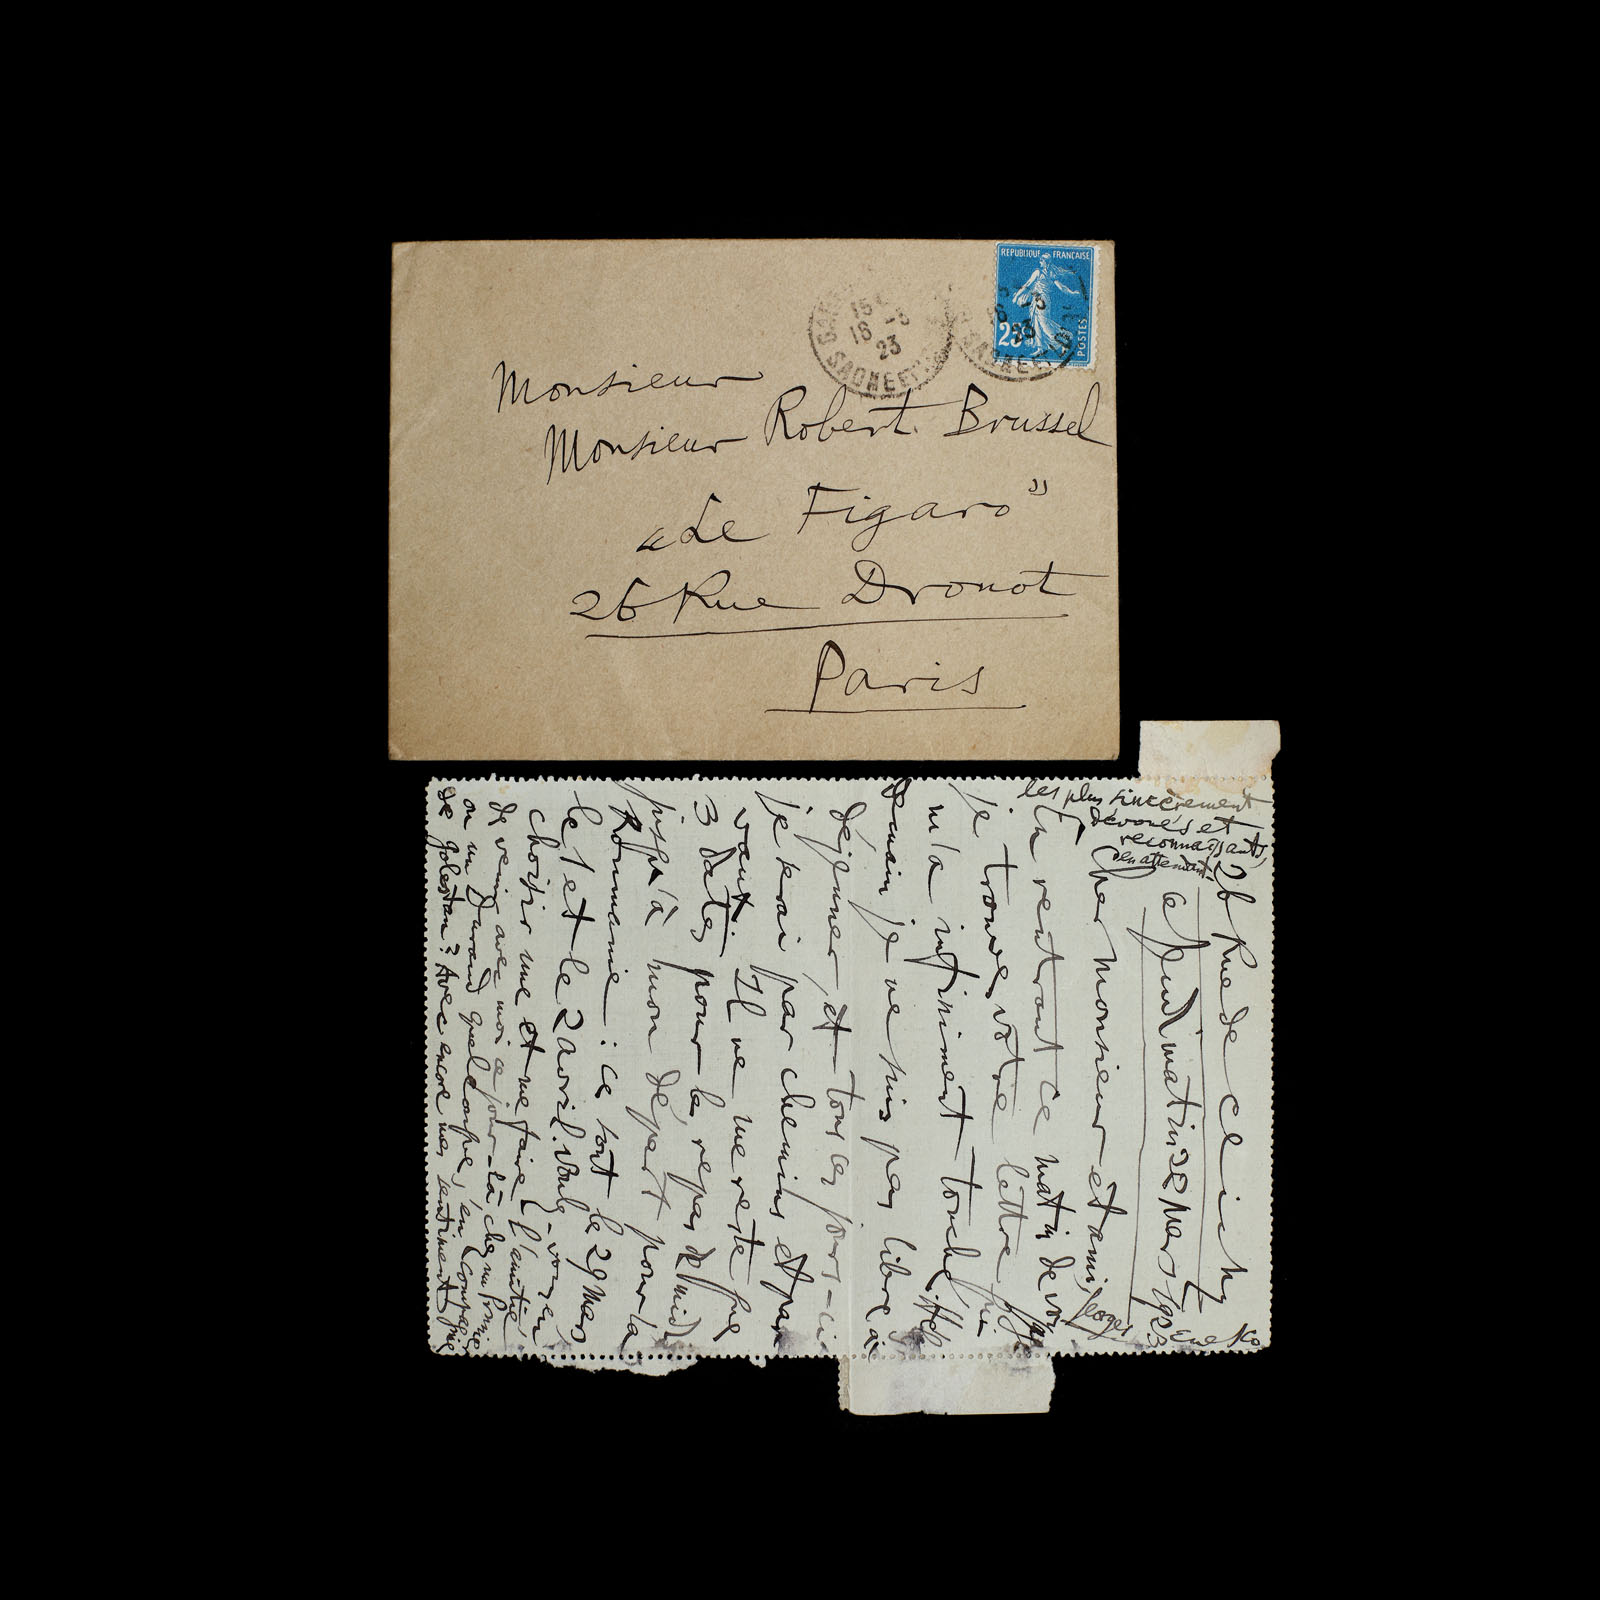 REPUBLIQUE FRANÇAISE
25
POSTES
15
16 -3
23
SAONE ET
16 -3
23
SAONE ET
Monsieur
Monsieur Robert Brussel
"Le Figaro"
26 Rue Drouot
Paris
26 Rue de Clichy
ce Jeudi matin 22 Mars 1923
Cher monsieur et ami,
En rentrant ce matin de
je trouve votre lettre qui
m'a infiniment touché.
Demain je ne suis pas libre à
déjeuner, et tous ces jours-ci
je serai par chemins et par
vaux. Il ne me reste que
3 dates pour les repas de midi
jusqu'à mon départ pour la
Roumanie : ce sont le 29 Mars
le 1 et le 2 avril. Voulez-vous en
choisir une et me faire l'amitié
de venir avec moi ce jour-là chez un Prunier
ou un Durand quelconque, en compagnie
de Golestan ? Avec encore mes sentiments
les plus sincèrement
dévoués et
reconnaissants,
en attendant
Georges Enesko